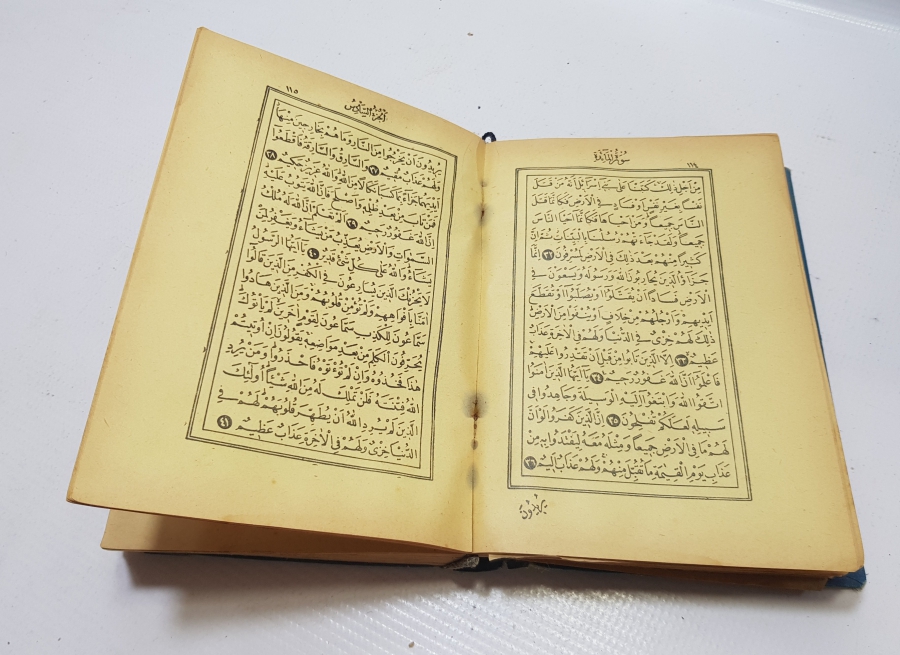 سُورَةُ الْمَائِدَةِ
١١٤
مِنْ اَجْلِ ذٰلِكَ كَتَبْنَا عَلٰى بَنِى اِسْرَائِلَ اَنَّهُ مَنْ قَتَلَ
نَفْسًا بِغَيْرِ نَفْسٍ اَوْ فَسَادٍ فِى الْاَرْضِ فَكَاَنَّمَا قَتَلَ
النَّاسَ جَمِيعًا وَمَنْ اَحْيَاهَا فَكَاَنَّمَا اَحْيَا النَّاسَ
جَمِيعًا وَلَقَدْ جَاءَتْهُمْ رُسُلُنَا بِالْبَيِّنَاتِ ثُمَّ اِنَّ
كَثِيرًا مِنْهُمْ بَعْدَ ذٰلِكَ فِى الْاَرْضِ لَمُسْرِفُونَ ٣٢ اِنَّمَا
جَزَاؤُا الَّذِينَ يُحَارِبُونَ اللهَ وَرَسُولَهُ وَيَسْعَوْنَ فِى
الْاَرْضِ فَسَادًا اَنْ يُقَتَّلُوا اَوْ يُصَلَّبُوا اَوْ تُقَطَّعَ
اَيْدِيهِمْ وَاَرْجُلُهُمْ مِنْ خِلَافٍ اَوْ يُنْفَوْا مِنَ الْاَرْضِ
ذٰلِكَ لَهُمْ خِزْىٌ فِى الدُّنْيَا وَلَهُمْ فِى الْاٰخِرَةِ عَذَابٌ
عَظِيمٌ ٣٣ اِلَّا الَّذِينَ تَابُوا مِنْ قَبْلِ اَنْ تَقْدِرُوا عَلَيْهِمْ
فَاعْلَمُوا اَنَّ اللهَ غَفُورٌ رَحِيمٌ ٣٤ يَا اَيُّهَا الَّذِينَ اٰمَنُوا
اتَّقُوا اللهَ وَابْتَغُوا اِلَيْهِ الْوَسِيلَةَ وَجَاهِدُوا فِى
سَبِيلِهِ لَعَلَّكُمْ تُفْلِحُونَ ٣٥ اِنَّ الَّذِينَ كَفَرُوا لَوْ اَنَّ
لَهُمْ مَا فِى الْاَرْضِ جَمِيعًا وَمِثْلَهُ مَعَهُ لِيَفْتَدُوا بِهِ مِنْ
عَذَابِ يَوْمِ الْقِيٰمَةِ مَا تُقُبِّلَ مِنْهُمْ وَلَهُمْ عَذَابٌ اَلِيمٌ ٣٦
يريدون
اَلْجُزْءُ السَّادِسُ
١١٥
يُرِيدُونَ اَنْ يَخْرُجُوا مِنَ النَّارِ وَمَا هُمْ بِخَارِجِينَ مِنْهَا
وَلَهُمْ عَذَابٌ مُقِيمٌ ٣٧ وَالسَّارِقُ وَالسَّارِقَةُ فَاقْطَعُوا
اَيْدِيَهُمَا جَزَاءً بِمَا كَسَبَا نَكَالًا مِنَ اللهِ وَاللهُ عَزِيزٌ حَكِيمٌ ٣٨
فَمَنْ تَابَ مِنْ بَعْدِ ظُلْمِهِ وَاَصْلَحَ فَاِنَّ اللهَ يَتُوبُ عَلَيْهِ
اِنَّ اللهَ غَفُورٌ رَحِيمٌ ٣٩ اَلَمْ تَعْلَمْ اَنَّ اللهَ لَهُ مُلْكُ
السَّمٰوَاتِ وَالْاَرْضِ يُعَذِّبُ مَنْ يَشَاءُ وَيَغْفِرُ لِمَنْ
يَشَاءُ وَاللهُ عَلٰى كُلِّ شَىْءٍ قَدِيرٌ ٤٠ يَا اَيُّهَا الرَّسُولُ
لَا يَحْزُنْكَ الَّذِينَ يُسَارِعُونَ فِى الْكُفْرِ مِنَ الَّذِينَ قَالُوا
اٰمَنَّا بِاَفْوَاهِهِمْ وَلَمْ تُؤْمِنْ قُلُوبُهُمْ وَمِنَ الَّذِينَ هَادُوا
سَمَّاعُونَ لِلْكَذِبِ سَمَّاعُونَ لِقَوْمٍ اٰخَرِينَ لَمْ يَأْتُوكَ
يُحَرِّفُونَ الْكَلِمَ مِنْ بَعْدِ مَوَاضِعِهِ يَقُولُونَ اِنْ اُوتِيتُمْ
هٰذَا فَخُذُوهُ وَاِنْ لَمْ تُؤْتَوْهُ فَاحْذَرُوا وَمَنْ يُرِدِ
اللهُ فِتْنَتَهُ فَلَنْ تَمْلِكَ لَهُ مِنَ اللهِ شَيْئًا اُولٰئِكَ
الَّذِينَ لَمْ يُرِدِ اللهُ اَنْ يُطَهِّرَ قُلُوبَهُمْ لَهُمْ فِى
الدُّنْيَا خِزْىٌ وَلَهُمْ فِى الْاٰخِرَةِ عَذَابٌ عَظِيمٌ ٤١